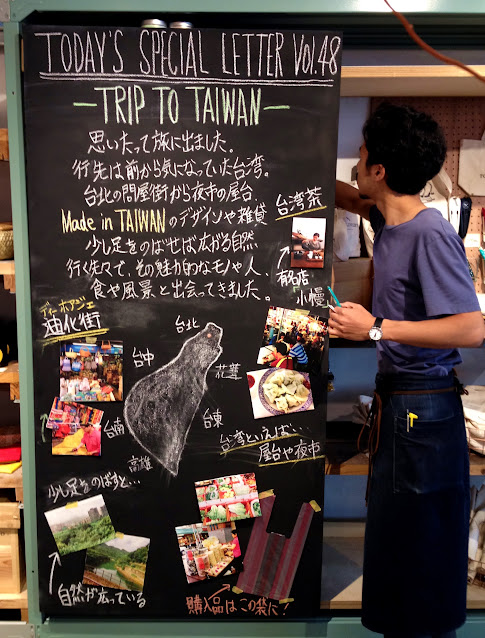 TODAY'S SPECIAL LETTER VOL.48
—TRIP TO TAIWAN—
思いたって旅に出ました。
行先は前から気になっていた台湾。
台北の問屋街から夜市の屋台、
Made in TAIWANのデザインや雑貨
少し足をのばせば広がる自然
行く先々で、その魅力的なモノや人、
食や風景と出会ってきました。
台湾茶
有名店
小慢
ディーホアジェ
油化街
台北
台中
花蓮
台南
台東
高雄
台湾といえば…
屋台や夜市
少し足をのばすと…
自然が広っている
購入品はこの袋に!